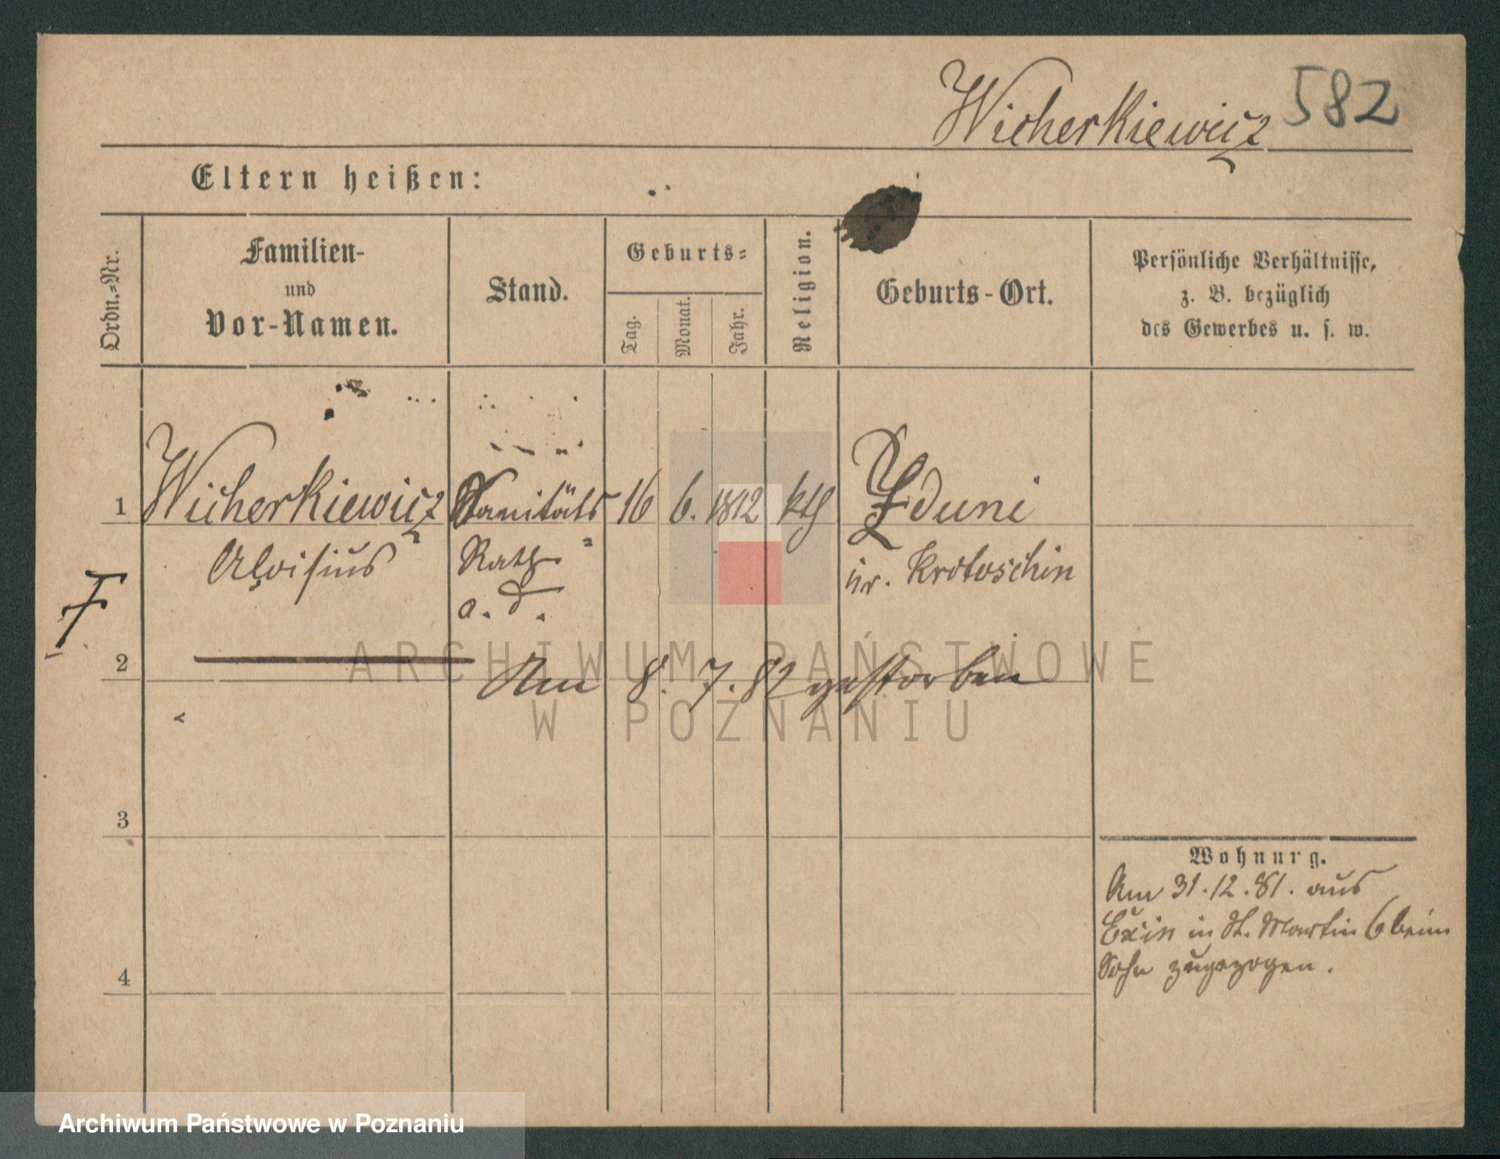 Wicherkiewicz 582
Eltern heißen:
Ordn.-Nr.
Familien-
und
Vor-Namen.
Stand.
Geburts-
Tag.
Monat.
Jahr.
Religion.
Geburts-Ort.
Persönliche Verhältnisse,
z. B. bezüglich
des Gewerbes u. s. w.
1 Wicherkiewicz Sanitäts 16 6. 1812 kth Zduni
Aloisius Rath Kr. Krotoschin
a. D.
2
Am 8. 7. 82 gestorben
ARCHIWUM PAŃSTWOWE
W POZNANIU
3
Wohnung.
Am 31.12.81. aus
Exin in St. Martin 6 beim
Sohn zugezogen.
4
Archiwum Państwowe w Poznaniu